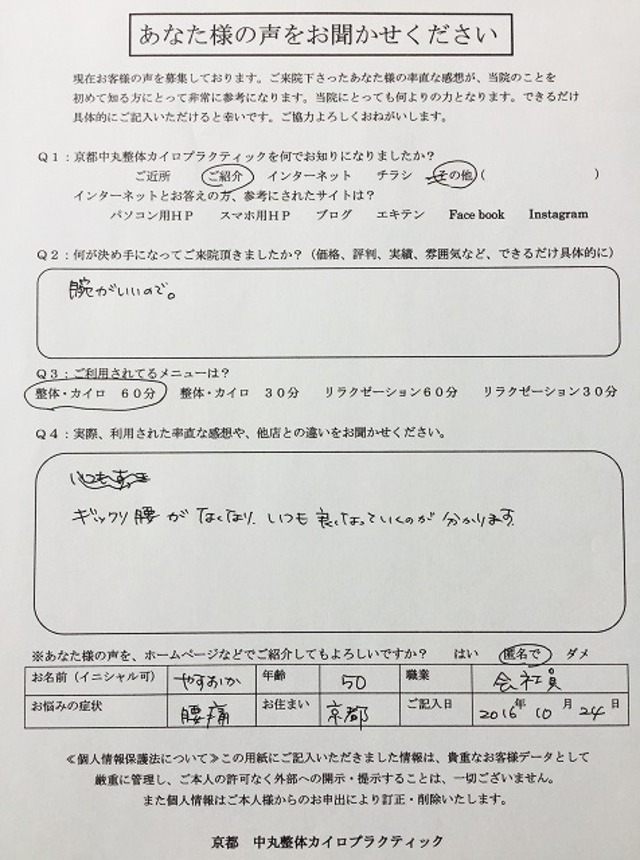 あなた様の声をお聞かせください
現在お客様の声を募集しております。ご来院下さったあなた様の率直な感想が、当院のことを
初めて知る方にとって非常に参考になります。当院にとっても何よりの力となります。できるだけ
具体的にご記入いただけると幸いです。ご協力よろしくおねがいします。
Q1：京都中丸整体カイロプラクティックを何でお知りになりましたか？
ご近所 ご紹介 インターネット チラシ その他（ ）
インターネットとお答えの方、参考にされたサイトは？
パソコン用HP スマホ用HP ブログ エキテン Face book Instagram
Q2：何が決め手になってご来院頂きましたか？（価格、評判、実績、雰囲気など、できるだけ具体的に）
腕がいいので。
Q3：ご利用されてるメニューは？
整体・カイロ 60分 整体・カイロ 30分 リラクゼーション60分 リラクゼーション30分
Q4：実際、利用された率直な感想や、他店との違いをお聞かせください。
ギックリ腰がなくなり、いつも良くなっていくのが分かります。
※あなた様の声を、ホームページなどでご紹介してもよろしいですか？ はい 匿名で ダメ
お名前（イニシャル可） やすおか 年齢 50 職業 会社員
お悩みの症状 腰痛 お住まい 京都 ご記入日 2016年 10月 24日
≪個人情報保護法について≫この用紙にご記入いただきました情報は、貴重なお客様データとして
厳重に管理し、ご本人の許可なく外部への開示・提示することは、一切ございません。
また個人情報はご本人様からのお申出により訂正・削除いたします。
京都 中丸整体カイロプラクティック